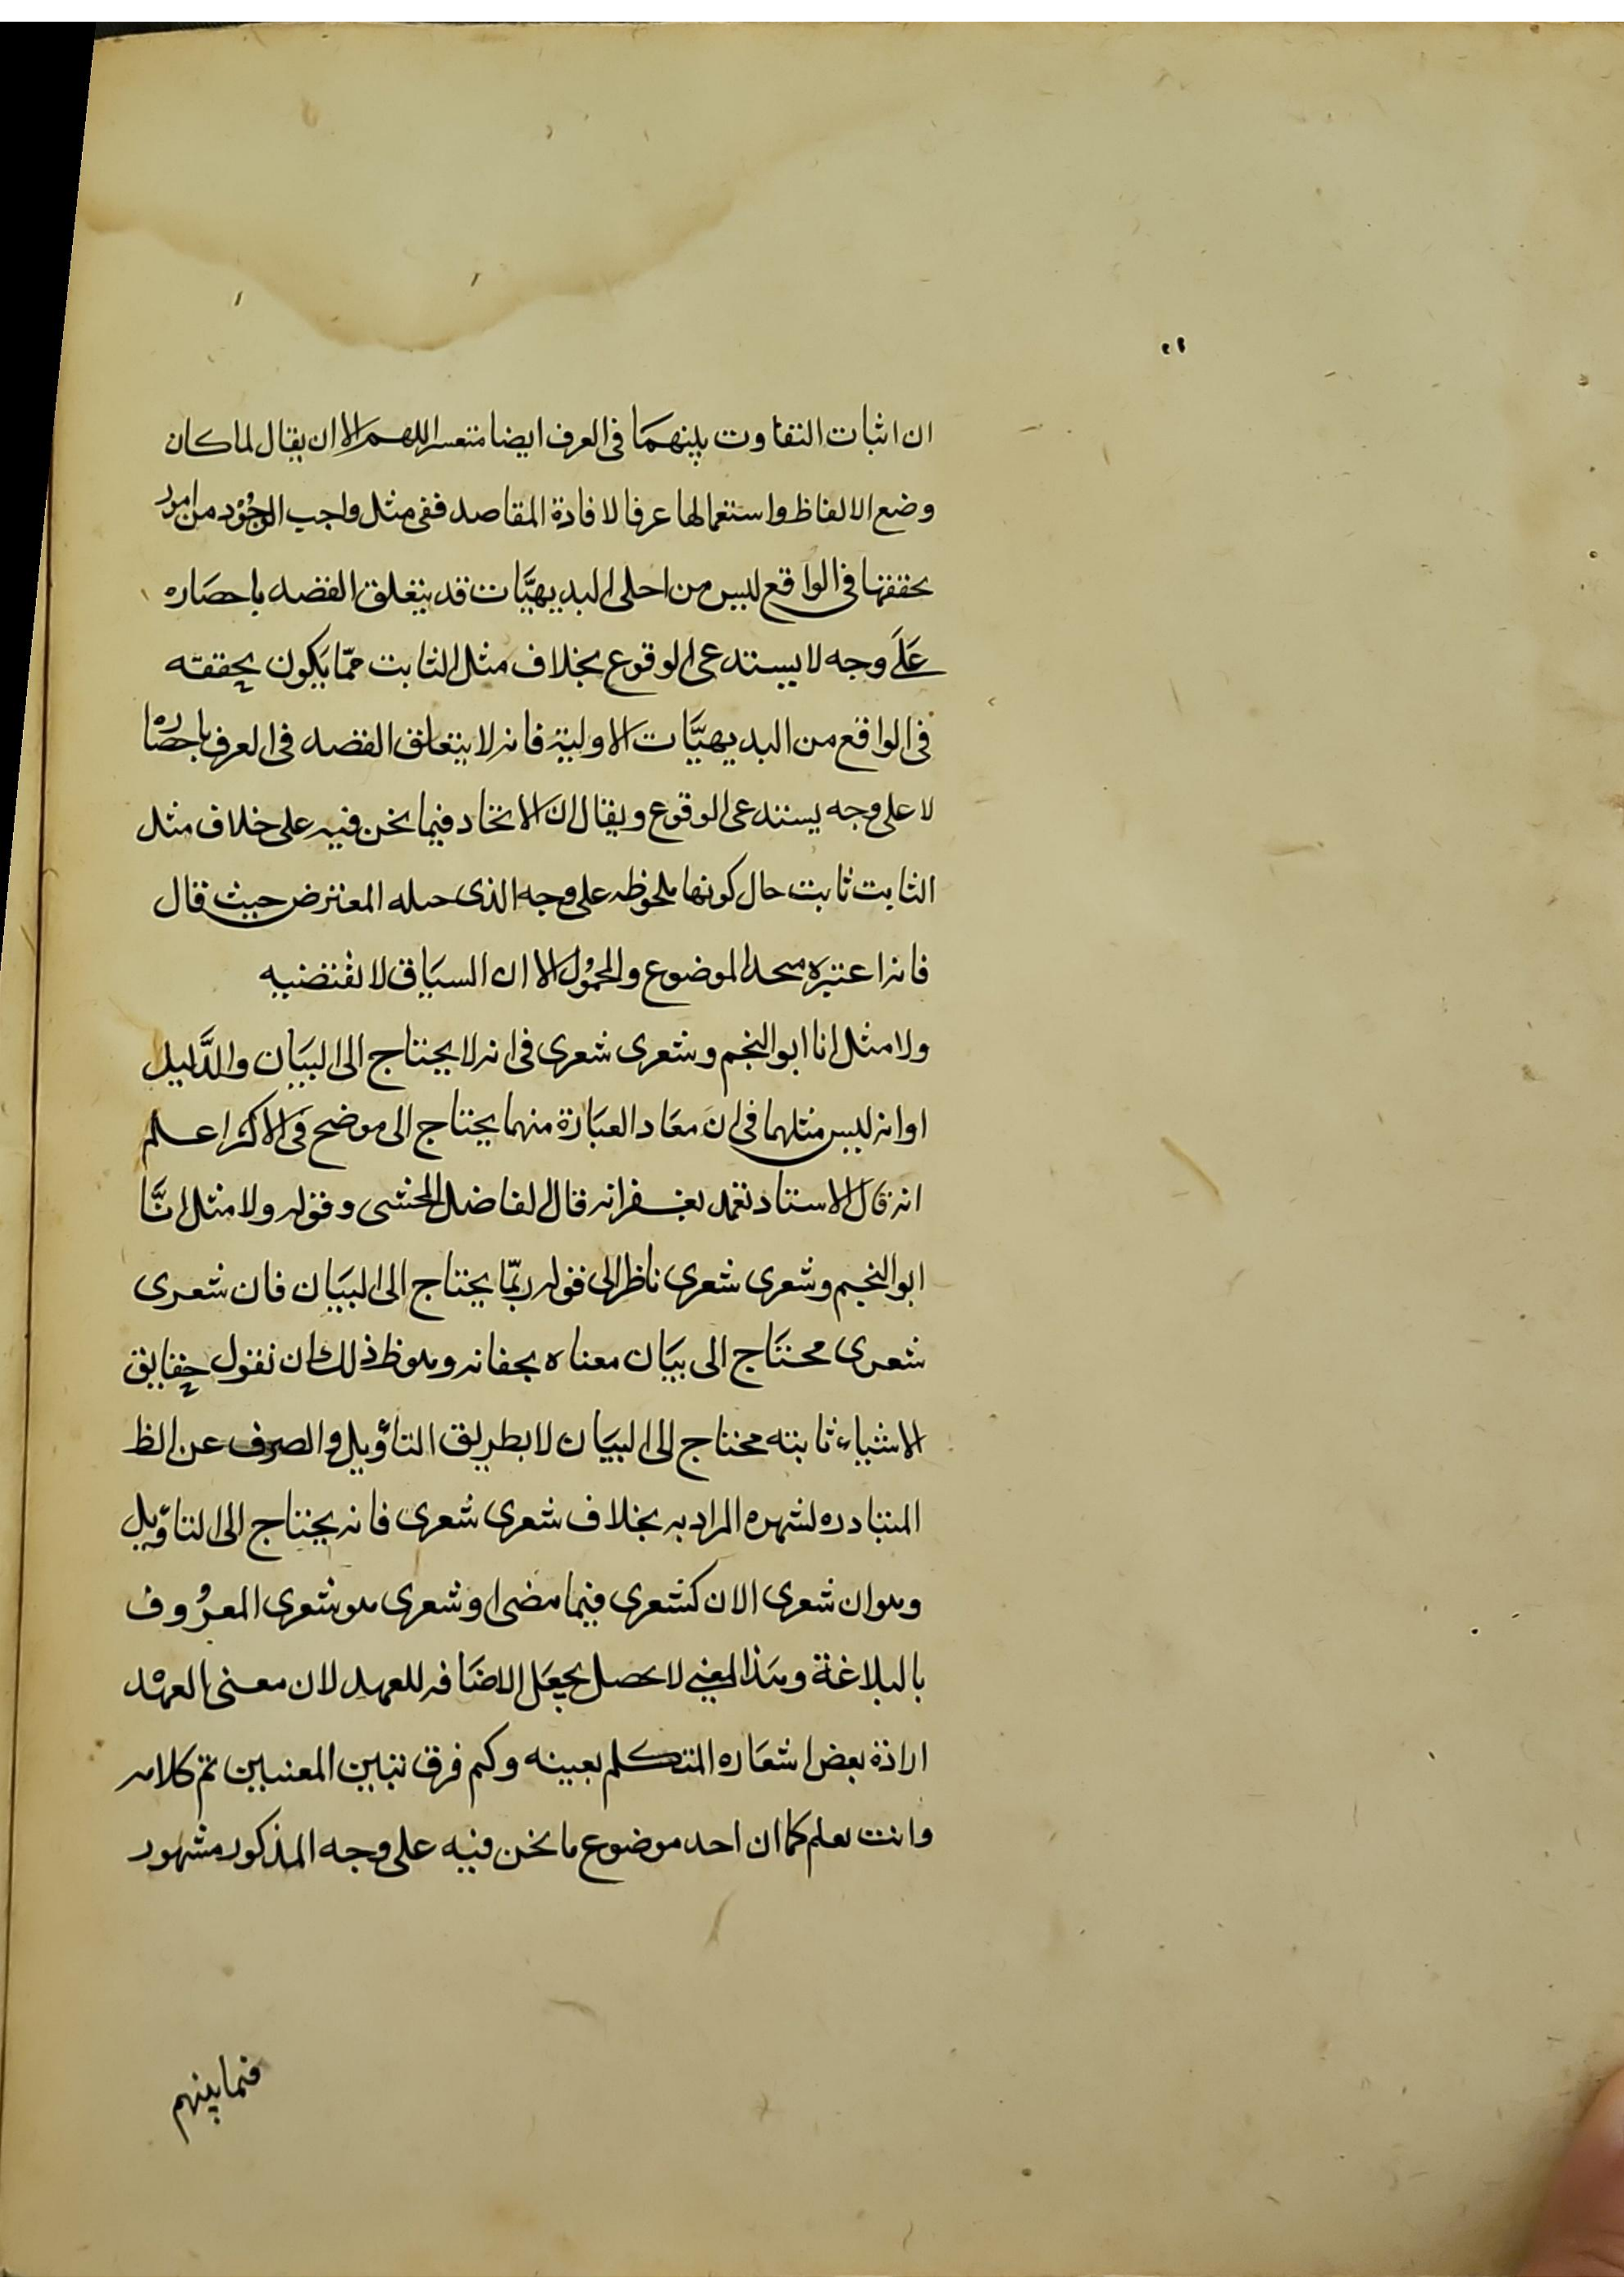 ان اثبات التفاوت بينهما فى العرف ايضا متعسر اللهم الا ان يقال لما كان
وضع الالفاظ واستعمالها عرفا لافادة المقاصد ففى مثل واجب الوجود من امور
تحققها فى الواقع ليس من اجلى البديهيَّات قد يتعلق القصد باحضاره
عَلَى وجه لا يستدعى الوقوع بخلاف مثل الثابت ممّا يكون تحققه
فى الواقع من البديهيَّات الاولية فانه لا يتعلق القصد فى العرف باحضاره
لا على وجه يستدعى الوقوع ويقال ان الاتحاد فيما نحن فيه على خلاف مثل
الثابت ثابت حال كونها ملحوظه على وجه الذى حمله المعترض حيث قال
فانه اعتبره متحد الموضوع والمحمُول الا ان السيَاق لا يقتضيه
ولا مثل انا ابو النجم وشعرى شعرى فى انه لا يحتاج الى البيَان والدَّليل
او انه ليس مثلهما فى ان مفاد العبَارة منهما يحتاج الى موضح فى الاكثر اعلم
انه قال الاستاد تغمد بغفرانه قال الفاضل المحشى وقوله ولا مثل انَّا
ابو النجم وشعرى شعرى ناظر الى قوله ربّما يحتاج الى البيَان فان شعرى
شعرى محتَاج الى بيَان معناه بخفائه وهو ظ ذلك ان نقول حقايق
الاشياء ثابته محتاج الى البيَان لا بطريق التاؤيل والصرف عن الظ
المتبادره لشهره المراد به بخلاف شعرى شعرى فانه يحتاج الى التاؤيل
وهو ان شعرى الان كشعرى فيما مضى او شعرى هو شعرى المعرُوف
بالبلاغة وهذا المعنى لا يحصل بجعَل الاضَافه للعهد لان معنى العهْد
ارادة بعض اشعَاره المتكلم بعينه وكم فرق تبين المعنيين تم كلامه
وانت تعلم كما ان احد موضوع ما نحن فيه على وجه المذكور مشهور
فما بينهم